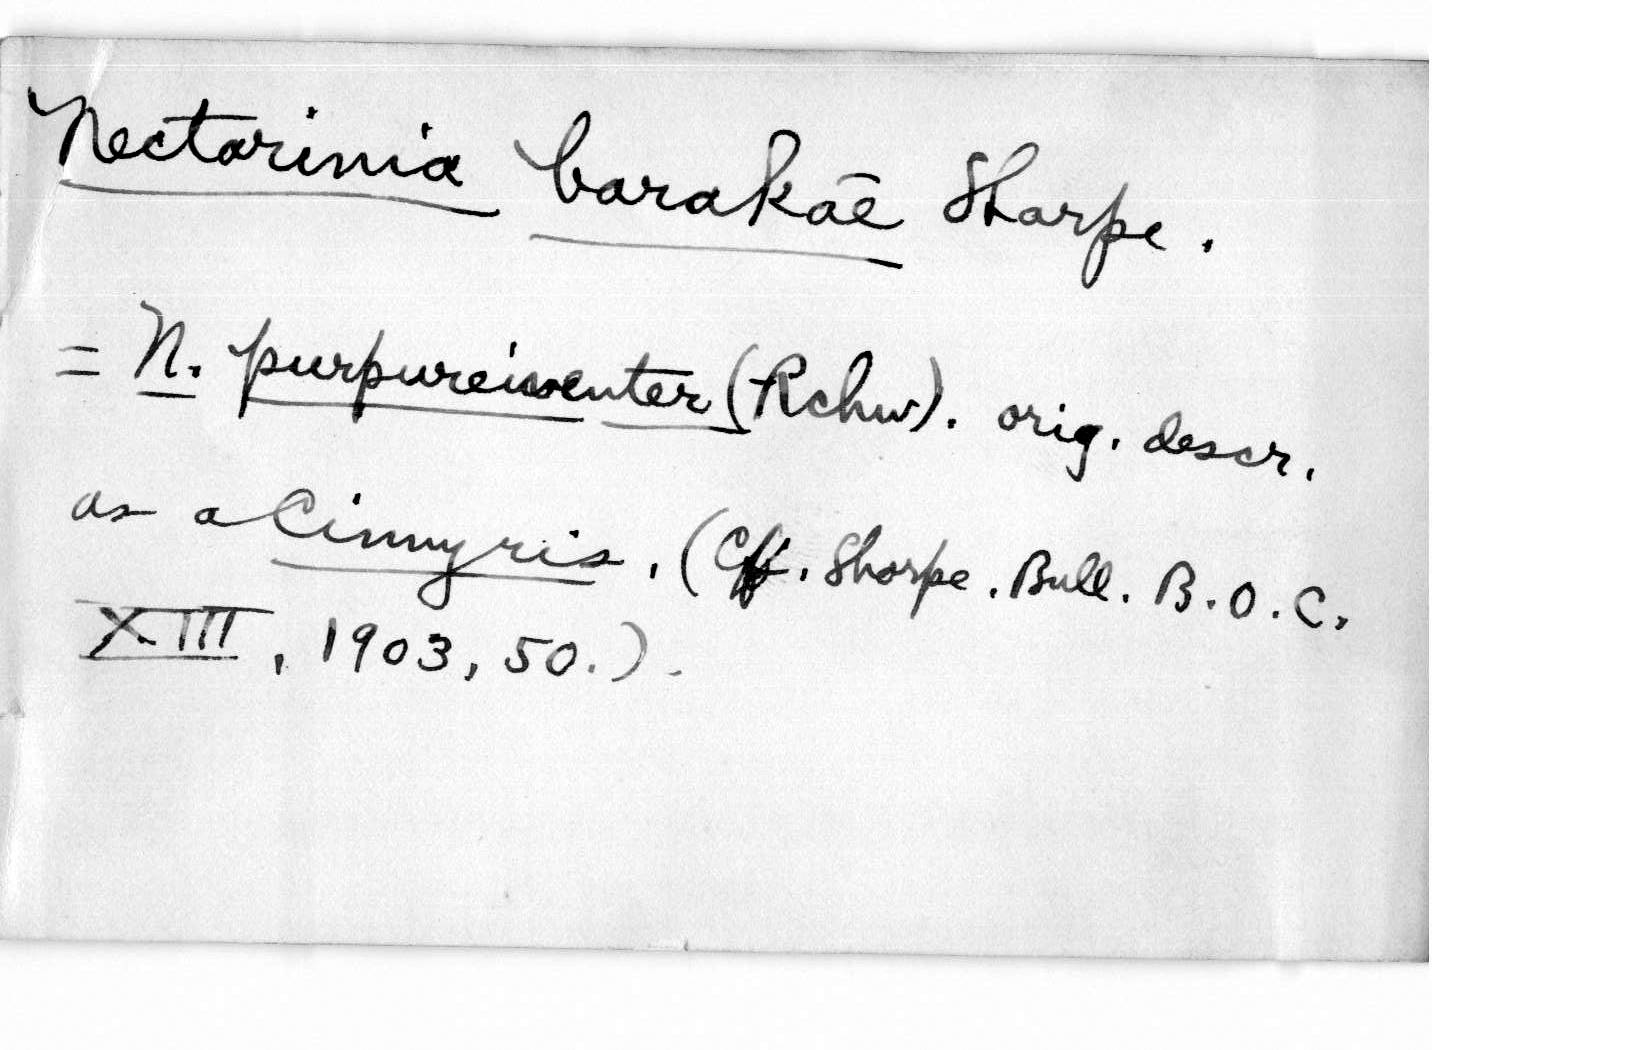 Nectarinia barakāē Sharpe.
= N. purpureiventer (Rchw). orig. descr.
as a Cinnyris, (Cf. Sharpe. Bull. B.O.C.
XIII, 1903, 50.).